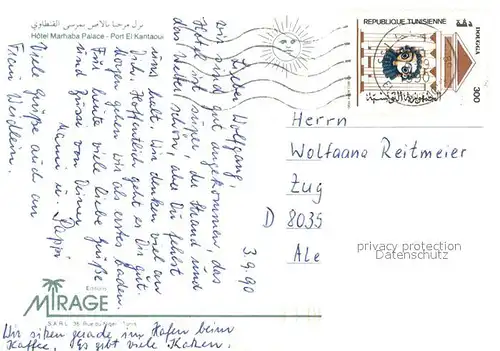 نزل مرحبا بالاص بمرسى القنطاوي
Hôtel Marhaba Palace - Port El Kantaoui
3.9.90
Lieber Wolfgang,
wir sind gut angekommen, das
Hotel ist super, der Strand und
das Wetter schön, aber Du fehlst
uns halt. Wir denken viel an
Dich. Hoffentlich geht es Dir gut.
Morgen gehen wir als erstes baden.
Für heute viele liebe Grüße
und Küsse von Deiner
Mami u. Pappi
Viele Grüße auch an
Frau Weidlein.
Wir sitzen gerade im Hafen beim
Kaffee. Es gibt viele Katzen.
Editions
MIRAGE
S.A.R.L.
REPUBLIQUE TUNISIENNE
300
الجمهورية التونسية
Herrn
Wolfgang Reitmeier
Zug
D 8035
Ale
privacy protection